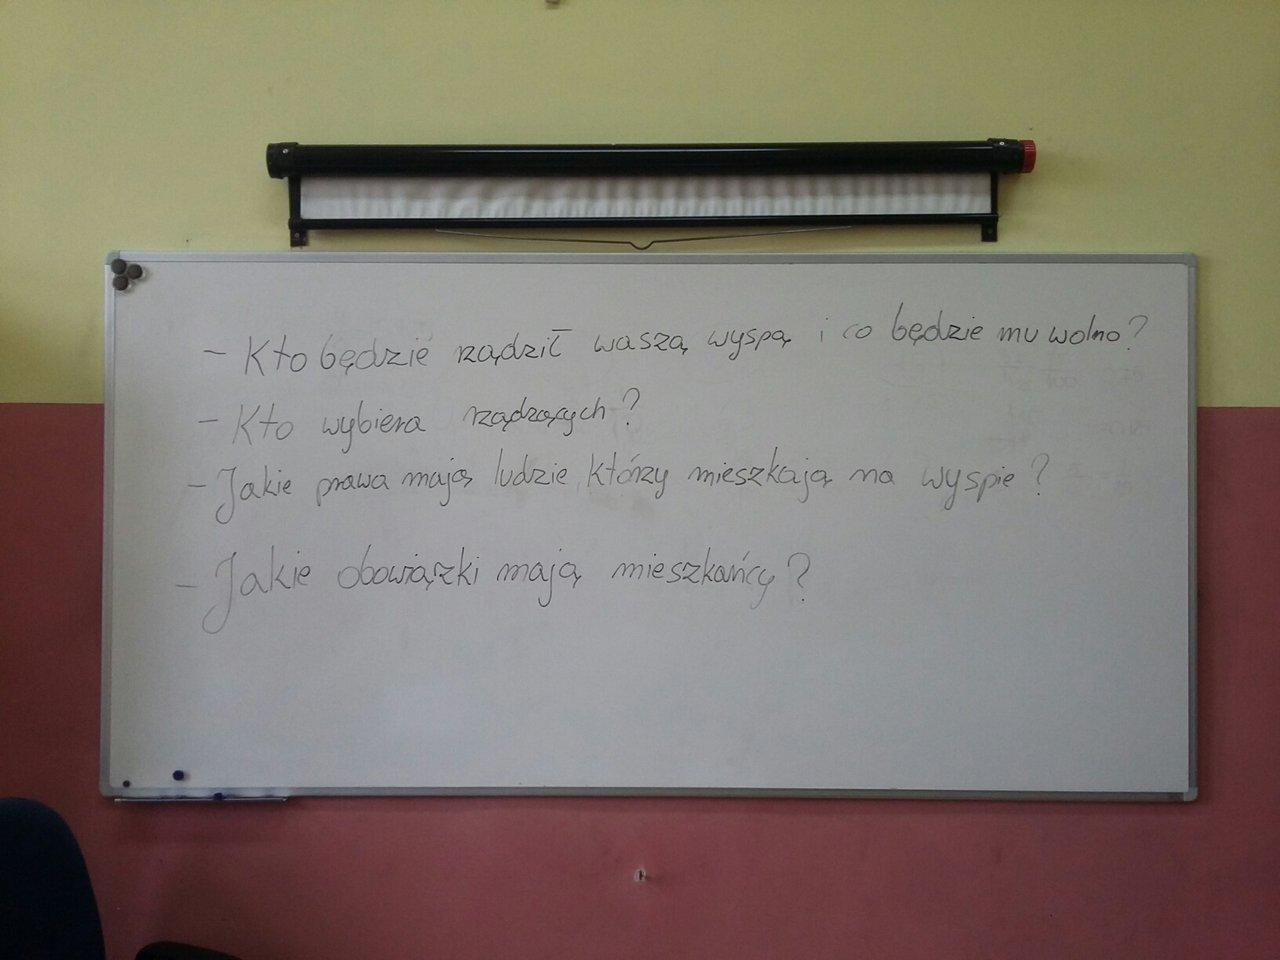 - Kto będzie rządził waszą wyspą i co będzie mu wolno?
- Kto wybiera rządzących?
- Jakie prawa mają ludzie, którzy mieszkają na wyspie?
- Jakie obowiązki mają mieszkańcy?